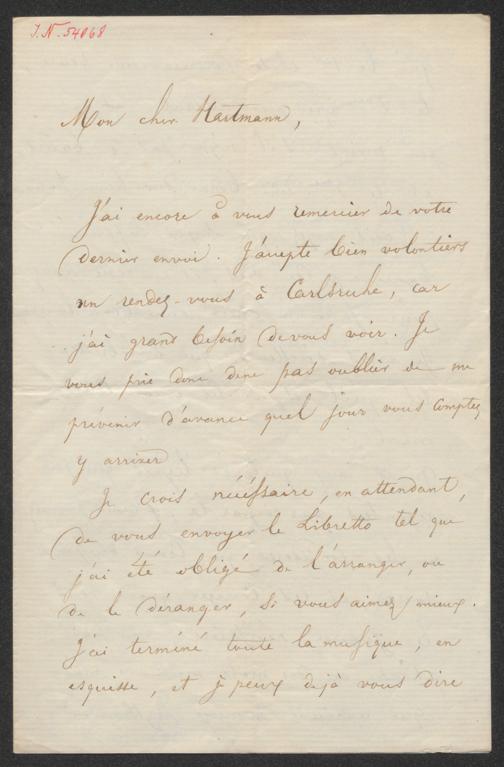 J.N. 54068
Mon cher Hartmann,
J'ai encore à vous remercier de votre
dernier envoi. J'accepte bien volontiers
un rendez-vous à Carlsruhe, car
j'ai grand besoin de vous voir. Je
vous prie donc de ne pas oublier de me
prévenir d'avance quel jour vous comptez
y arriver
Je crois nécéssaire, en attendant,
de vous envoyer le Libretto tel que
j'ai été obligé de l'arranger, ou
de le déranger, si vous aimez mieux.
J'ai terminé toute la musique, en
esquisse, et je peux déjà vous dire